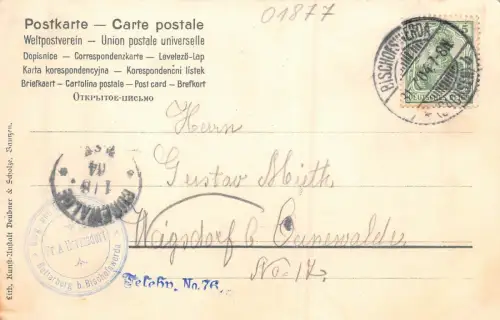 01877
Postkarte — Carte postale
Weltpostverein — Union postale universelle
Dopisnice - Correspondenzkarte - Levelező-Lap
Karta korespondencyjna - Korespondenční lístek
Briefkaart - Cartolina postale - Post card - Brefkort
ОТКРЫТОЕ-ПИСЬМО
BISCHOFSWERDA
Herrn
Gustav Mißth
Waigsdorf b Cunewalde
No. 17.
CUNEWALDE
Telephn. No. 76.
b. Bischofswerda
Lith. Kunst-Anstalt Deubner & Scholze, Bautzen.